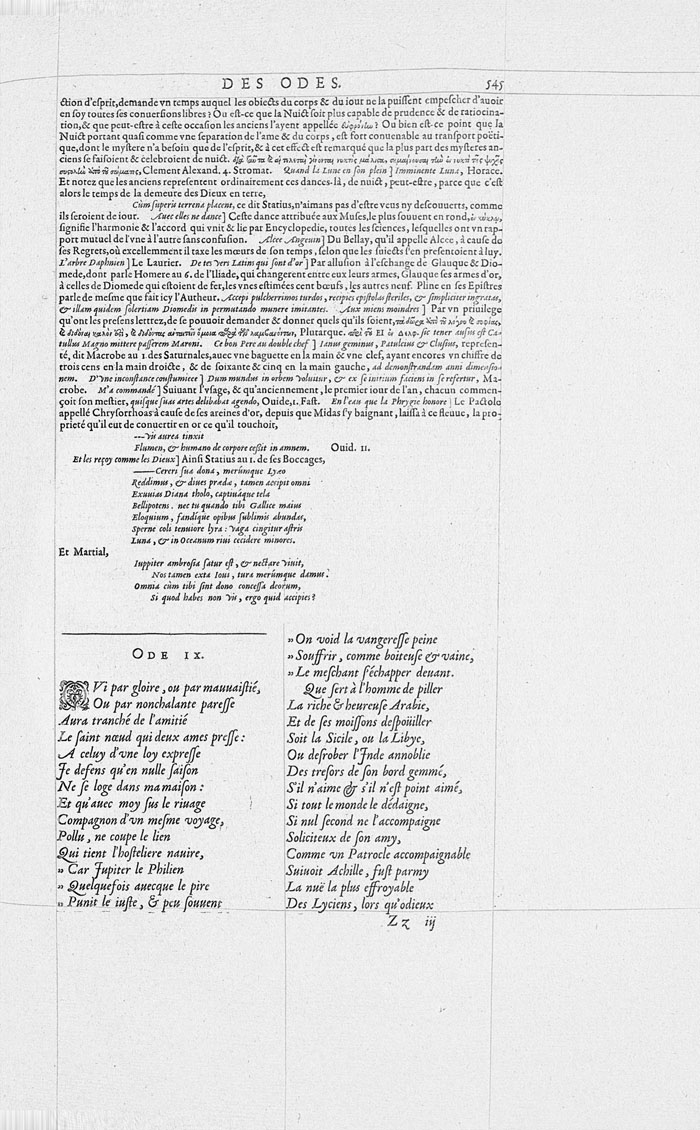 DES ODES. 545
ction d'esprit, demande vn temps auquel les obiects du corps & du iour ne la puissent empescher d'auoir
en soy toutes ses conuersions libres? Ou est-ce que la Nuict soit plus capable de prudence & de ratiocina-
tion, & que peut-estre à ceste occasion les anciens l'ayent appellée ? Ou bien est-ce point que la
Nuict portant quasi comme vne separation de l'ame & du corps, est fort conuenable au transport poëti-
que, dont le mystere n'a besoin que de l'esprit, & à cet effect est remarqué que la plus part des mysteres an-
ciens se faisoient & celebroient de nuict.
Clement Alexand. 4. Stromat. Quand la Lune en son plein] Imminente Luna, Horace.
Et notez que les anciens representent ordinairement ces dances-là, de nuict, peut-estre, parce que c'est
alors le temps de la demeure des Dieux en terre,
Cùm superis terrena placent, ce dit Statius, n'aimans pas d'estre veus ny descouuerts, comme
ils seroient de iour. Auec elles ne dance] Ceste dance attribuée aux Muses, le plus souuent en rond,
signifie l'harmonie & l'accord qui vnit & lie par Encyclopedie, toutes les sciences, lesquelles ont vn rap-
port mutuel de l'vne à l'autre sans confusion. Alcee Angeuin] Du Bellay, qu'il appelle Alcee, à cause de
ses Regrets, où excellemment il taxe les mœurs de son temps, selon que les suiects s'en presentoient à luy.
L'arbre Daphnien] Le Laurier. De tes vers Latins qui sont d'or] Par allusion à l'eschange de Glauque & Dio-
mede, dont parle Homere au 6. de l'Iliade, qui changerent entre eux leurs armes, Glauque ses armes d'or,
à celles de Diomede qui estoient de fer, les vnes estimées cent bœufs, les autres neuf. Pline en ses Epistres
parle de mesme que fait icy l'Autheur. Accepi pulcherrimos turdos, recipies epistolas steriles, & simpliciter ingratas,
& illam quidem solertiam Diomedis in permutando munere imitantes. Aux miens moindres] Par vn priuilege
qu'ont les presens lettrez, de se pouuoir demander & donner quels qu'ils soient,
Plutarque. sic tener ausus est Ca-
tullus Magno mittere passerem Maroni. Ce bon Pere au double chef] Ianus geminus, Patulcius & Clusius, represen-
té, dit Macrobe au 1. des Saturnales, auec vne baguette en la main & vne clef, ayant encores vn chiffre de
trois cens en la main droicte, & de soixante & cinq en la main gauche, ad demonstrandam anni dimensio-
nem. D'vne inconstance coustumiere] Dum mundus in orbem voluitur, & ex se initium faciens in se refertur, Ma-
crobe. M'a commandé] Suiuant l'vsage, & qu'anciennement, le premier iour de l'an, chacun commen-
çoit son mestier, quisque suas artes delibabat agendo, Ouide, 1. Fast. En l'eau que la Phrygie honore] Le Pactole
appellé Chrysorrhoas à cause de ses areines d'or, depuis que Midas s'y baignant, laissa à ce fleuue, la pro-
prieté qu'il eut de conuertir en or ce qu'il touchoit,
---Vis aurea tinxit
Flumen, & humano de corpore cessit in amnem. Ouid. 11.
Et les reçoy comme les Dieux] Ainsi Statius au 1. de ses Boccages,
——Cereri sua dona, merúmque Lyæo
Reddimus, & diues præda, tamen accipit omni
Exuuias Diana tholo, captiuáque tela
Bellipotens. nec tu quando tibi Gallice maius
Eloquium, fandíque opibus sublimis abundas,
Sperne coli tenuiore lyra: vaga cingitur astris
Luna, & in Oceanum riui cecidere minores.
Et Martial,
Iuppiter ambrosia satur est, & nectare viuit,
Nos tamen exta Ioui, tura merúmque damus:
Omnia cùm tibi sint dono concessa deorum,
Si quod habes non vis, ergo quid accipies?
ODE IX.
QVi par gloire, ou par mauuaistié,
Ou par nonchalante paresse
Aura tranché de l'amitié
Le saint nœud qui deux ames presse:
A celuy d'vne loy expresse
Je defens qu'en nulle saison
Ne se loge dans ma maison:
Et qu'auec moy sus le riuage
Compagnon d'vn mesme voyage,
Pollu, ne coupe le lien
Qui tient l'hosteliere nauire,
» Car Jupiter le Philien
» Quelquefois auecque le pire
» Punit le iuste, & peu souuent
» On void la vangeresse peine
» Souffrir, comme boiteuse & vaine,
» Le meschant s'échapper deuant.
Que sert à l'homme de piller
La riche & heureuse Arabie,
Et de ses moissons despoüiller
Soit la Sicile, ou la Libye,
Ou desrober l'Jnde annoblie
Des tresors de son bord gemmé,
S'il n'aime & s'il n'est point aimé,
Si tout le monde le dédaigne,
Si nul second ne l'accompaigne
Soliciteux de son amy,
Comme vn Patrocle accompaignable
Suiuoit Achille, fust parmy
La nuë la plus effroyable
Des Lyciens, lors qu'odieux
Zz iij